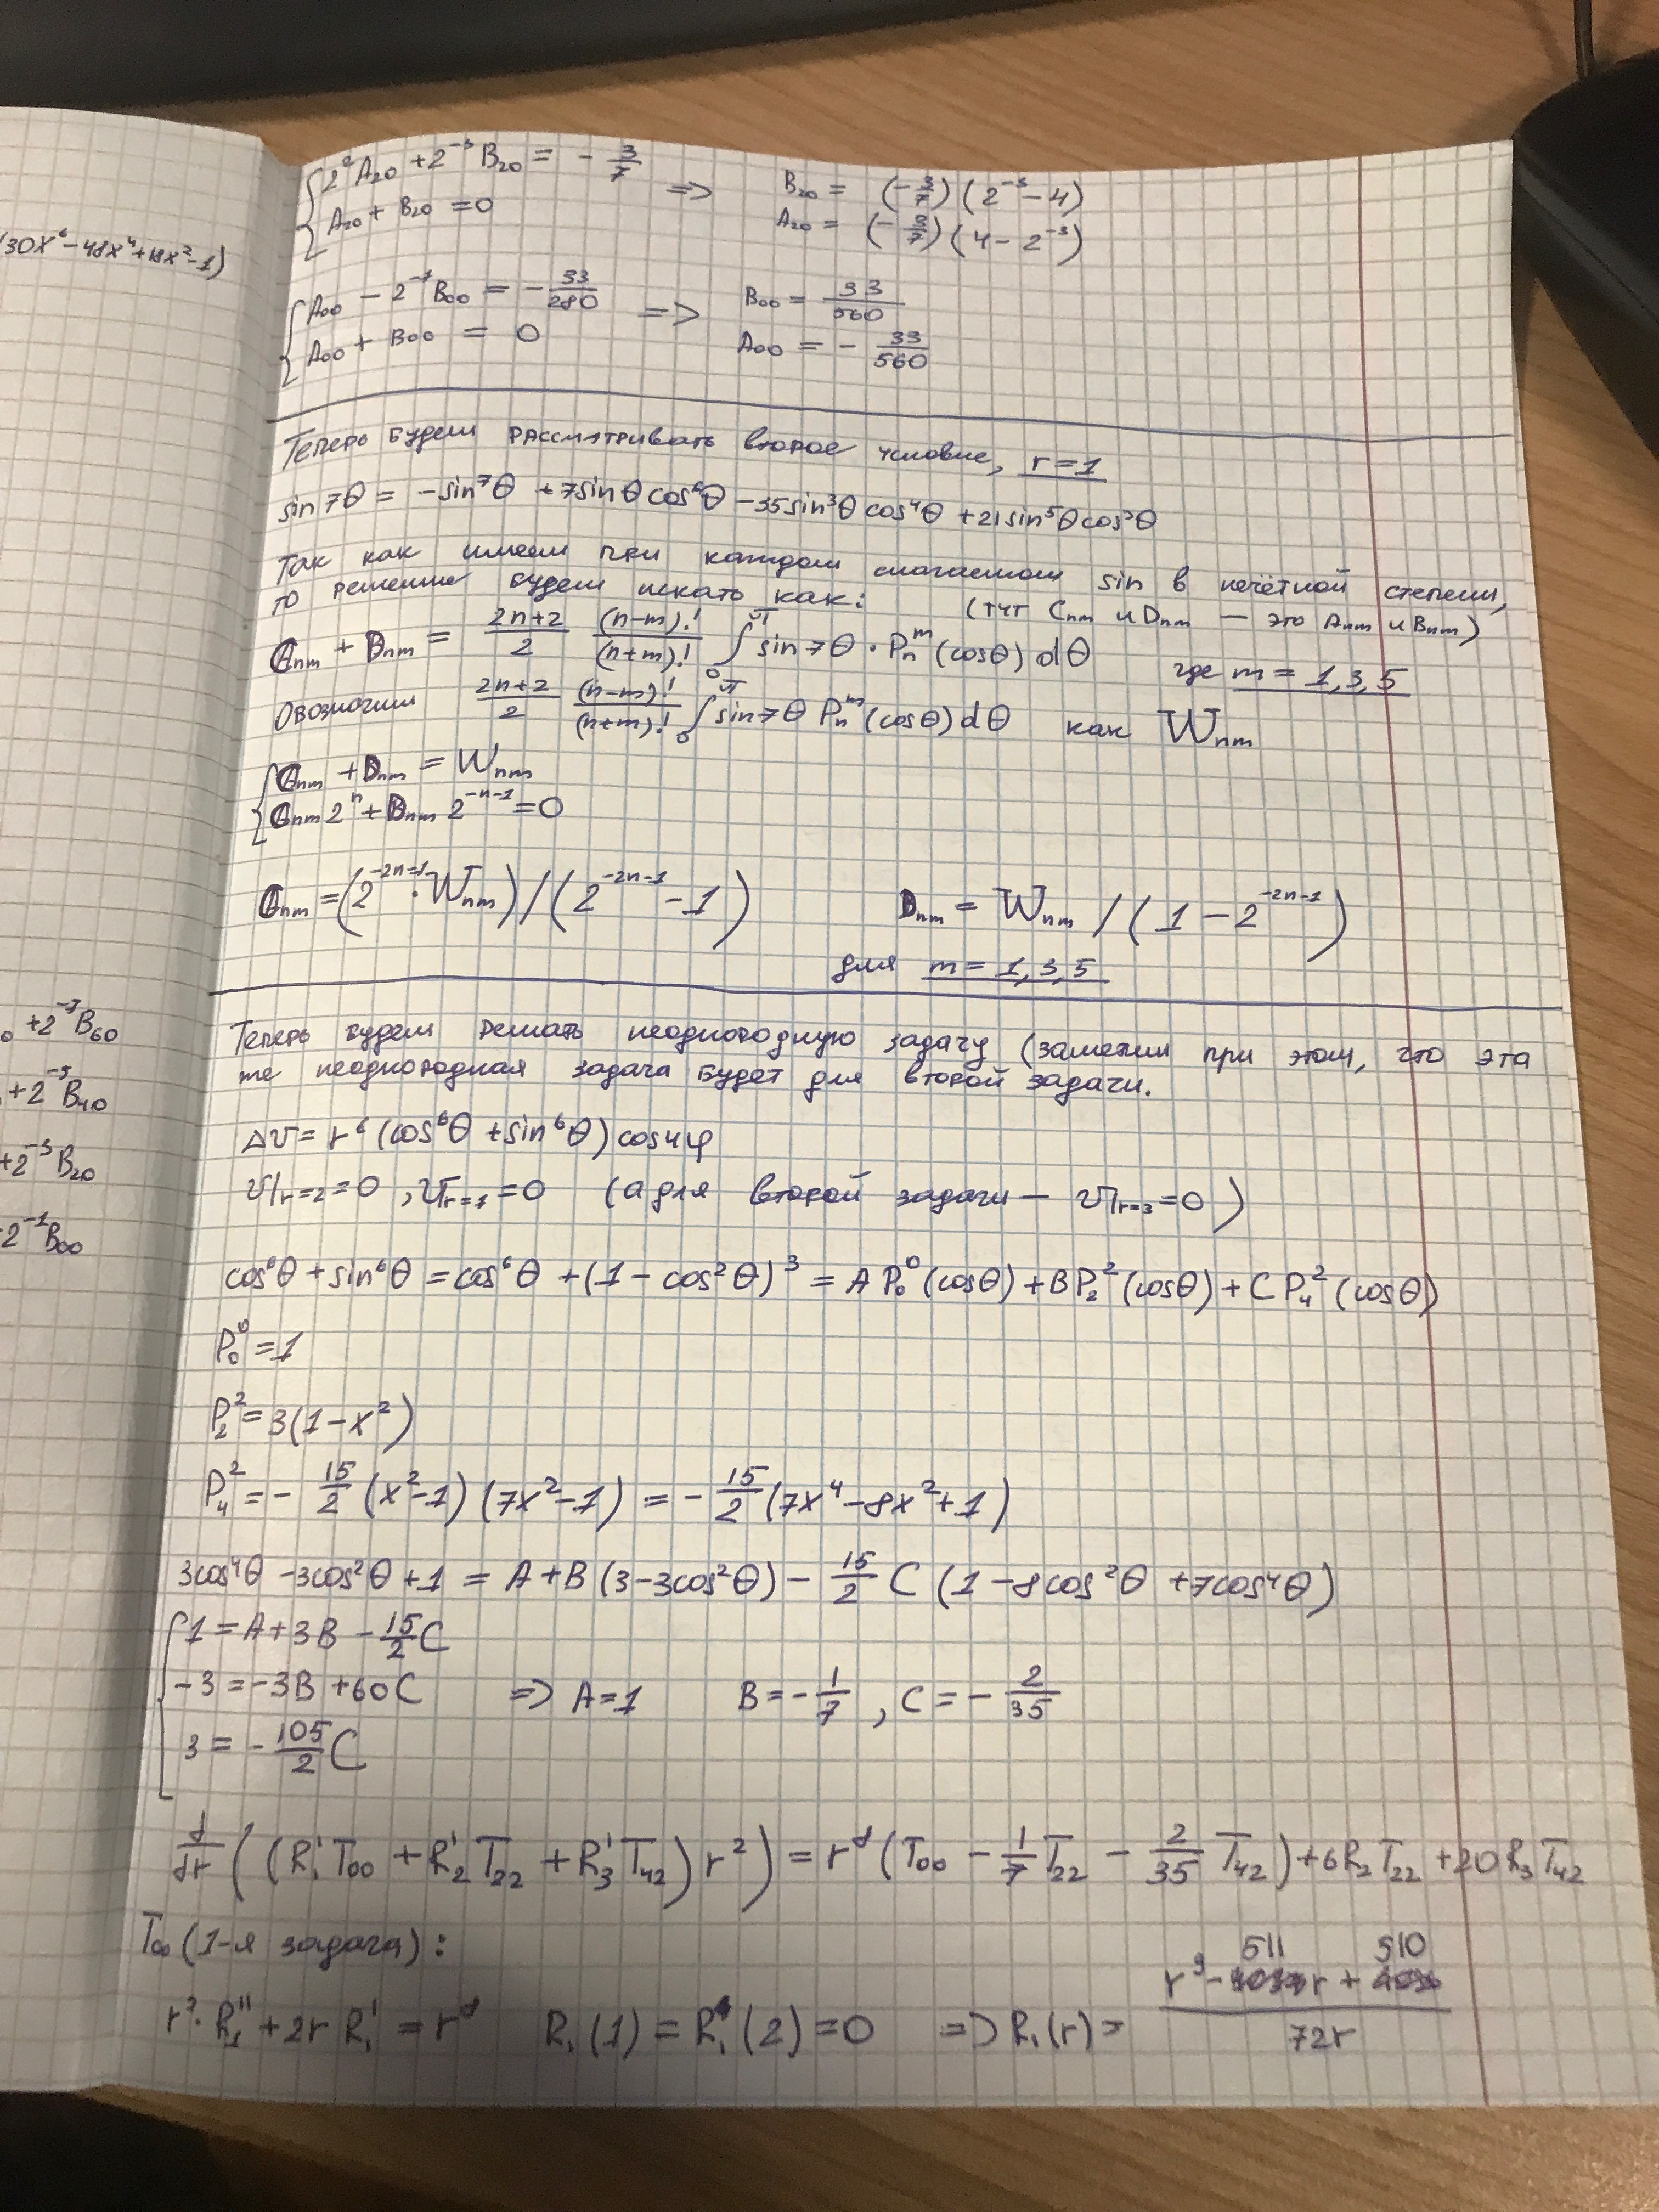 (30x⁶ − 48x⁴ + 18x² − 1)
{ 2²A₂₀ + 2⁻³B₂₀ = − 3/7
A₂₀ + B₂₀ = 0
=> B₂₀ = (−3/7)(2⁻³ − 4)
A₂₀ = (−3/7)(4 − 2⁻³)
{ A₀₀ − 2⁻¹B₀₀ = − 33/280
A₀₀ + B₀₀ = 0
=> B₀₀ = 33/560
A₀₀ = − 33/560
Теперь будем рассматривать второе условие, r = 1
sin7θ = −sin⁷θ + 7sinθcos⁶θ − 35sin³θcos⁴θ + 21sin⁵θcos²θ
Так как имеем при каждом слагаемом sin в нечётной степени,
то решение будем искать как: (тут Cₙₘ и Dₙₘ — это Aₙₘ и Bₙₘ)
Cₙₘ + Dₙₘ = (2n+2)/2 (n−m)!/(n+m)! ∫₀^π sin7θ · Pₙᵐ(cosθ)dθ где m = 1,3,5
Обозначим (2n+2)/2 (n−m)!/(n+m)! ∫₀^π sin7θ Pₙᵐ(cosθ)dθ как Wₙₘ
{ Cₙₘ + Dₙₘ = Wₙₘ
Cₙₘ2ⁿ + Dₙₘ2⁻ⁿ⁻¹ = 0
Cₙₘ = (2⁻²ⁿ⁻¹ · Wₙₘ)/(2⁻²ⁿ⁻¹ − 1) Dₙₘ = Wₙₘ/(1 − 2⁻²ⁿ⁻¹)
для m = 1,3,5
Теперь будем решать неоднородную задачу (заметим при этом, что эта
же неоднородная задача будет для второй задачи.
Δv = r⁶(cos⁶θ + sin⁶θ)cos4φ
v|r=2 = 0, v|r=1 = 0 (а для второй задачи — v|r=3 = 0)
cos⁶θ + sin⁶θ = cos⁶θ + (1 − cos²θ)³ = AP₀⁰(cosθ) + BP₂²(cosθ) + CP₄²(cosθ)
P₀⁰ = 1
P₂² = 3(1 − x²)
P₄² = − 15/2 (x² − 1)(7x² − 1) = − 15/2 (7x⁴ − 8x² + 1)
3cos⁴θ − 3cos²θ + 1 = A + B(3 − 3cos²θ) − 15/2 C(1 − 8cos²θ + 7cos⁴θ)
{ 1 = A + 3B − 15/2 C
−3 = −3B + 60C => A = 1 B = − 1/7, C = − 2/35
3 = − 105/2 C
d/dr((R₁'T₀₀ + R₂'T₂₂ + R₃'T₄₂)r²) = r⁸(T₀₀ − 1/7 T₂₂ − 2/35 T₄₂) + 6R₂T₂₂ + 20R₃T₄₂
T₀₀ (1-я задача):
r² · R₁'' + 2rR₁' = r⁸ R₁(1) = R₁(2) = 0 => R₁(r) = (r⁹ − 511r + 510)/72r
₀ + 2⁻⁷B₆₀
+ 2⁻⁵B₄₀
+ 2⁻³B₂₀
2⁻¹B₀₀